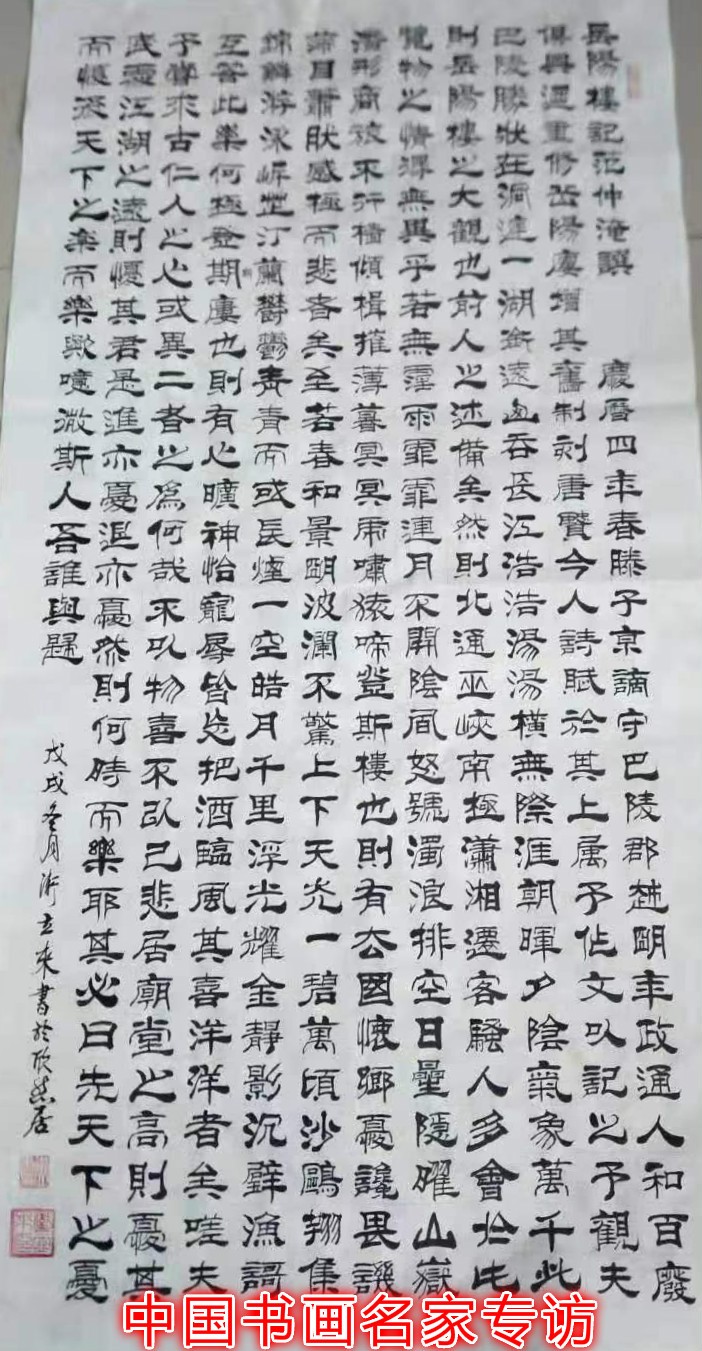 岳陽樓記范仲淹譔
慶曆四年春滕子京謫守巴陵郡越明年政通人和百廢
俱興迺重修岳陽廔增其舊制刻唐賢今人詩賦於其上属予作文以記之予觀夫
巴陵勝狀在洞達一湖銜遠山吞長江浩浩湯湯橫無際涯朝暉夕陰氣象萬千此
則岳陽樓之大觀也前人之述備矣然則北通巫峽南極瀟湘遷客騷人多會於此
覽物之情淂無異乎若無霪雨霏霏連月不開陰風怒號濁浪排空日星隱曜山嶽
潛形商旅不行檣傾楫摧薄暮冥冥虎嘯猿啼登斯樓也則有去國懷鄉憂讒畏譏
滿目蕭然感極而悲者矣至若春和景明波瀾不驚上下天光一碧萬頃沙鷗翔集
錦鱗游泳岸芷汀蘭鬱鬱青青而或長煙一空皓月千里浮光耀金靜影沉璧漁謌
互答此樂何極登期廔也則有心曠神怡寵辱皆忘把酒臨風其喜洋洋者矣嗟夫
予嘗求古仁人之心或異二者之為何哉不以物喜不以己悲居廟堂之高則憂其
民處江湖之遠則憂其君是進亦憂退亦憂然則何時而樂耶其必曰先天下之憂
而憂後天下之樂而樂歟噫微斯人吾誰與歸
戊戌冬月 立來書於欣然居
中国书画名家专访